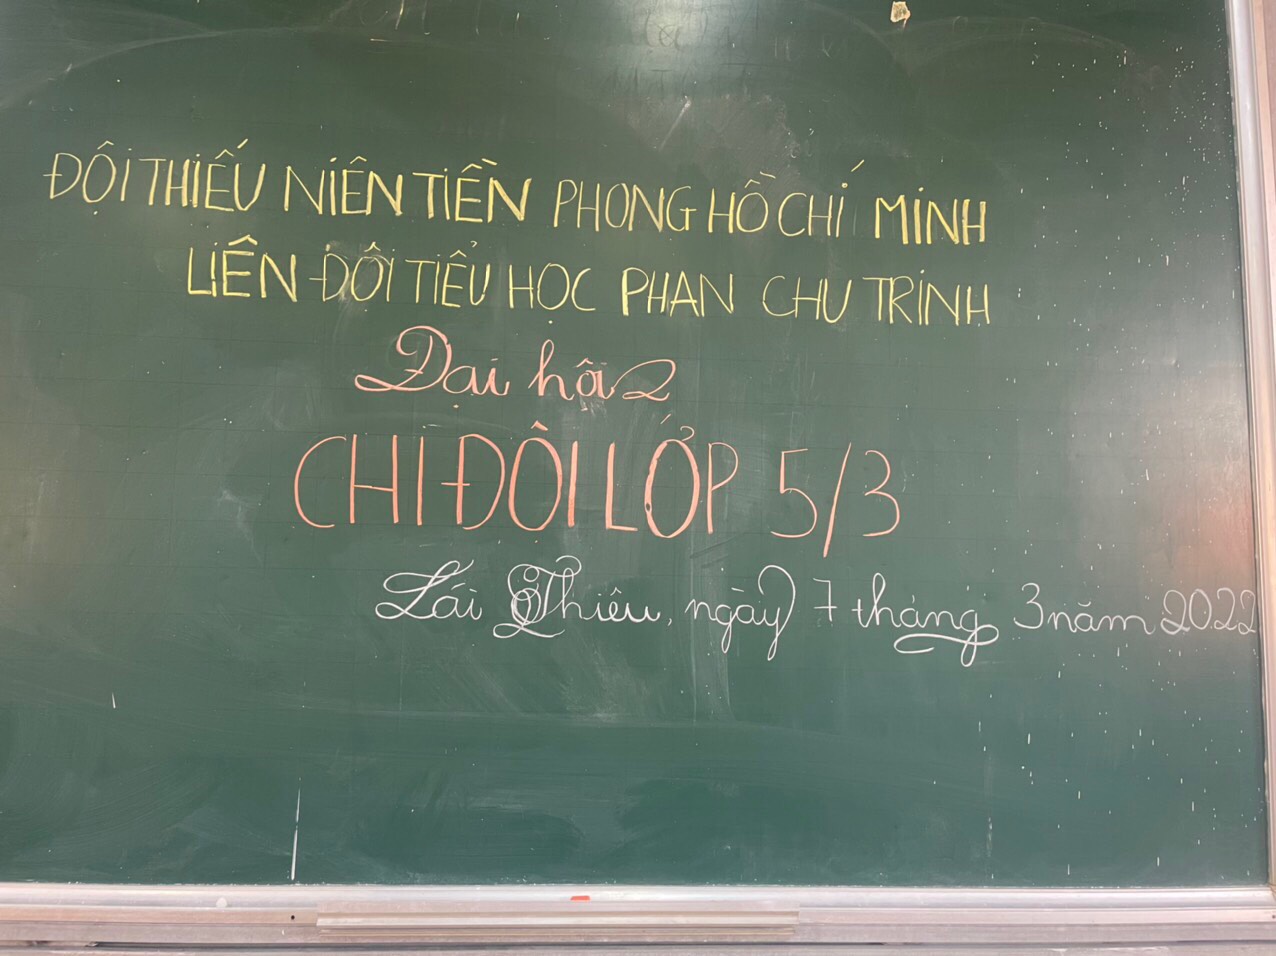 ĐỘI THIẾU NIÊN TIỀN PHONG HỒ CHÍ MINH
LIÊN ĐỘI TIỂU HỌC PHAN CHU TRINH
Đại hội
CHI ĐỘI LỚP 5/3
Lái Thiêu, ngày 7 tháng 3 năm 2022